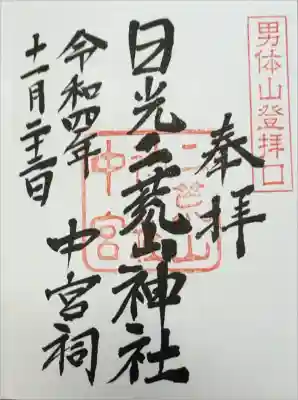 男体山登拝口
奉拝
日光二荒山神社
中宮祠
令和四年
十一月二十三日